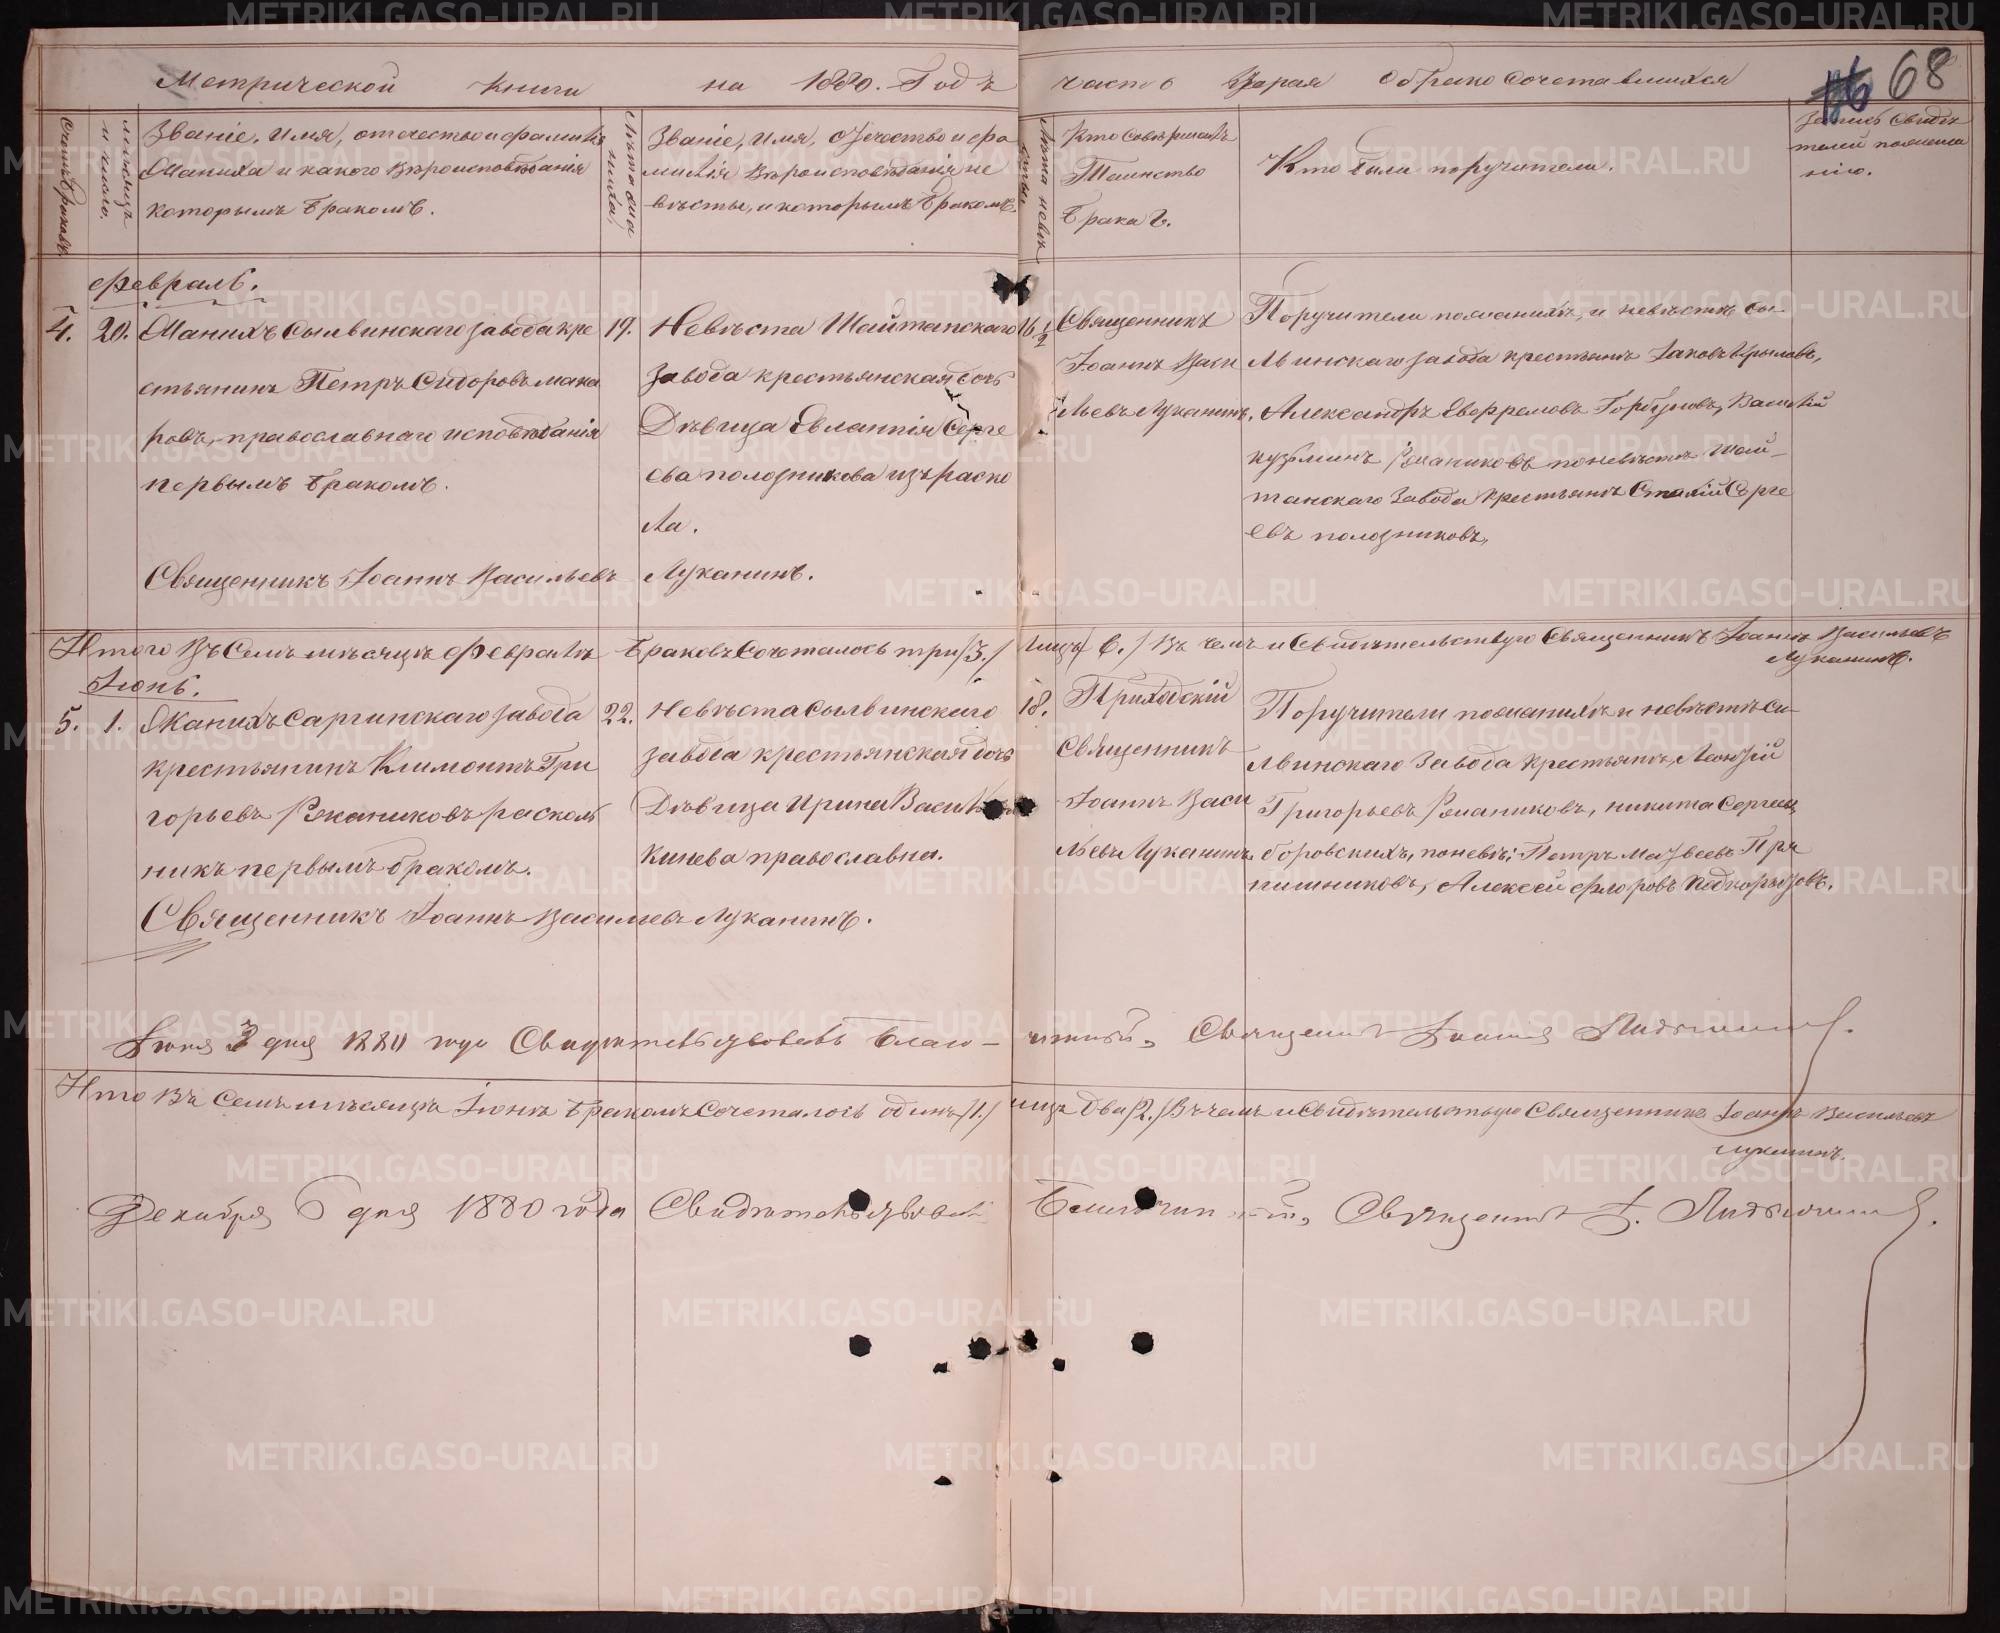 Метрической книги на 1880. Годъ часть Вторая о бракосочетавшихся
68
Счетъ браковъ.
Мѣсяцъ и число.
Званіе, имя, отечество и фамилія
Жениха и какого вѣроисповѣданія
которымъ бракомъ.
Лѣта жениха,
Званіе, имя, отчество и фа
милія вѣроисповѣданія не
вѣсты, и которымъ бракомъ.
Лѣта невѣсты
Кто совершалъ
Таинство
брака.
Кто были поручители.
Февраль.
4. 20. Женихъ Сылвинскаго завода кре
стьянинъ Петръ Сидоровъ мака
ровъ, православнаго исповѣданія
первымъ бракомъ.
19. Невѣста Шайтанскаго
завода крестьянская дочь
Дѣвица Евлампія Серге
ева полозникова изъ раско
ла.
16 1/2 Священникъ
Іоаннъ Васи
льевъ Луканинъ.
Поручители по женихѣ, и невѣстѣ сы-
лвинскаго завода крестьяне Іаковъ
Александръ Евфремовъ Горбуновъ, Василий
кузьминъ Ржаниковъ по невѣстѣ Шай-
танскаго завода крестьянъ Серге
евъ полозниковъ,
Священникъ Іоаннъ Васильевъ Луканинъ.
Итого въ семъ мѣсяцѣ Февралѣ браковъ сочеталось три /3./ лицъ /6./ въ чемъ и свидѣтельствую Священникъ Іоаннъ Васильевъ
Луканинъ.
Іюнь.
5. 1. Женихъ Саргинскаго завода
крестьянинъ Климонтъ Гри
горьевъ Ржаниковъ расколь
никъ первымъ бракомъ.
22. Невѣста Сылвинскаго
завода крестьянская дочь
Дѣвица Ирина
Кинева православна.
18. Приходскій
Священникъ
Іоаннъ Васи
льевъ Луканинъ
Поручители по женихѣ и невѣстѣ сы-
лвинскаго завода крестьяне, Леонтій
Григорьевъ Ржаниковъ, никита Сергеевъ
боровскихъ, по невѣ: Петръ Матвеевъ Пря
нишниковъ, Алексей флоровъ Подкорытовъ.
Священникъ Іоаннъ Васильевъ Луканинъ.
Іюня 3 дня 1880 года Свидѣтельствовалъ Благо-чинный, Священникъ Іоаннъ
Итого въ семъ мѣсяцѣ Іюнѣ бракомъ сочеталось одинъ /1./ лицъ два /2./ въ чемъ и свидѣтельствую Священникъ Іоаннъ Васильевъ
Луканинъ.
Декабря 6 дня 1880 года Свидѣтельствовалъ Благочинный, Священникъ І.
METRIKI.GASO-URAL.RU